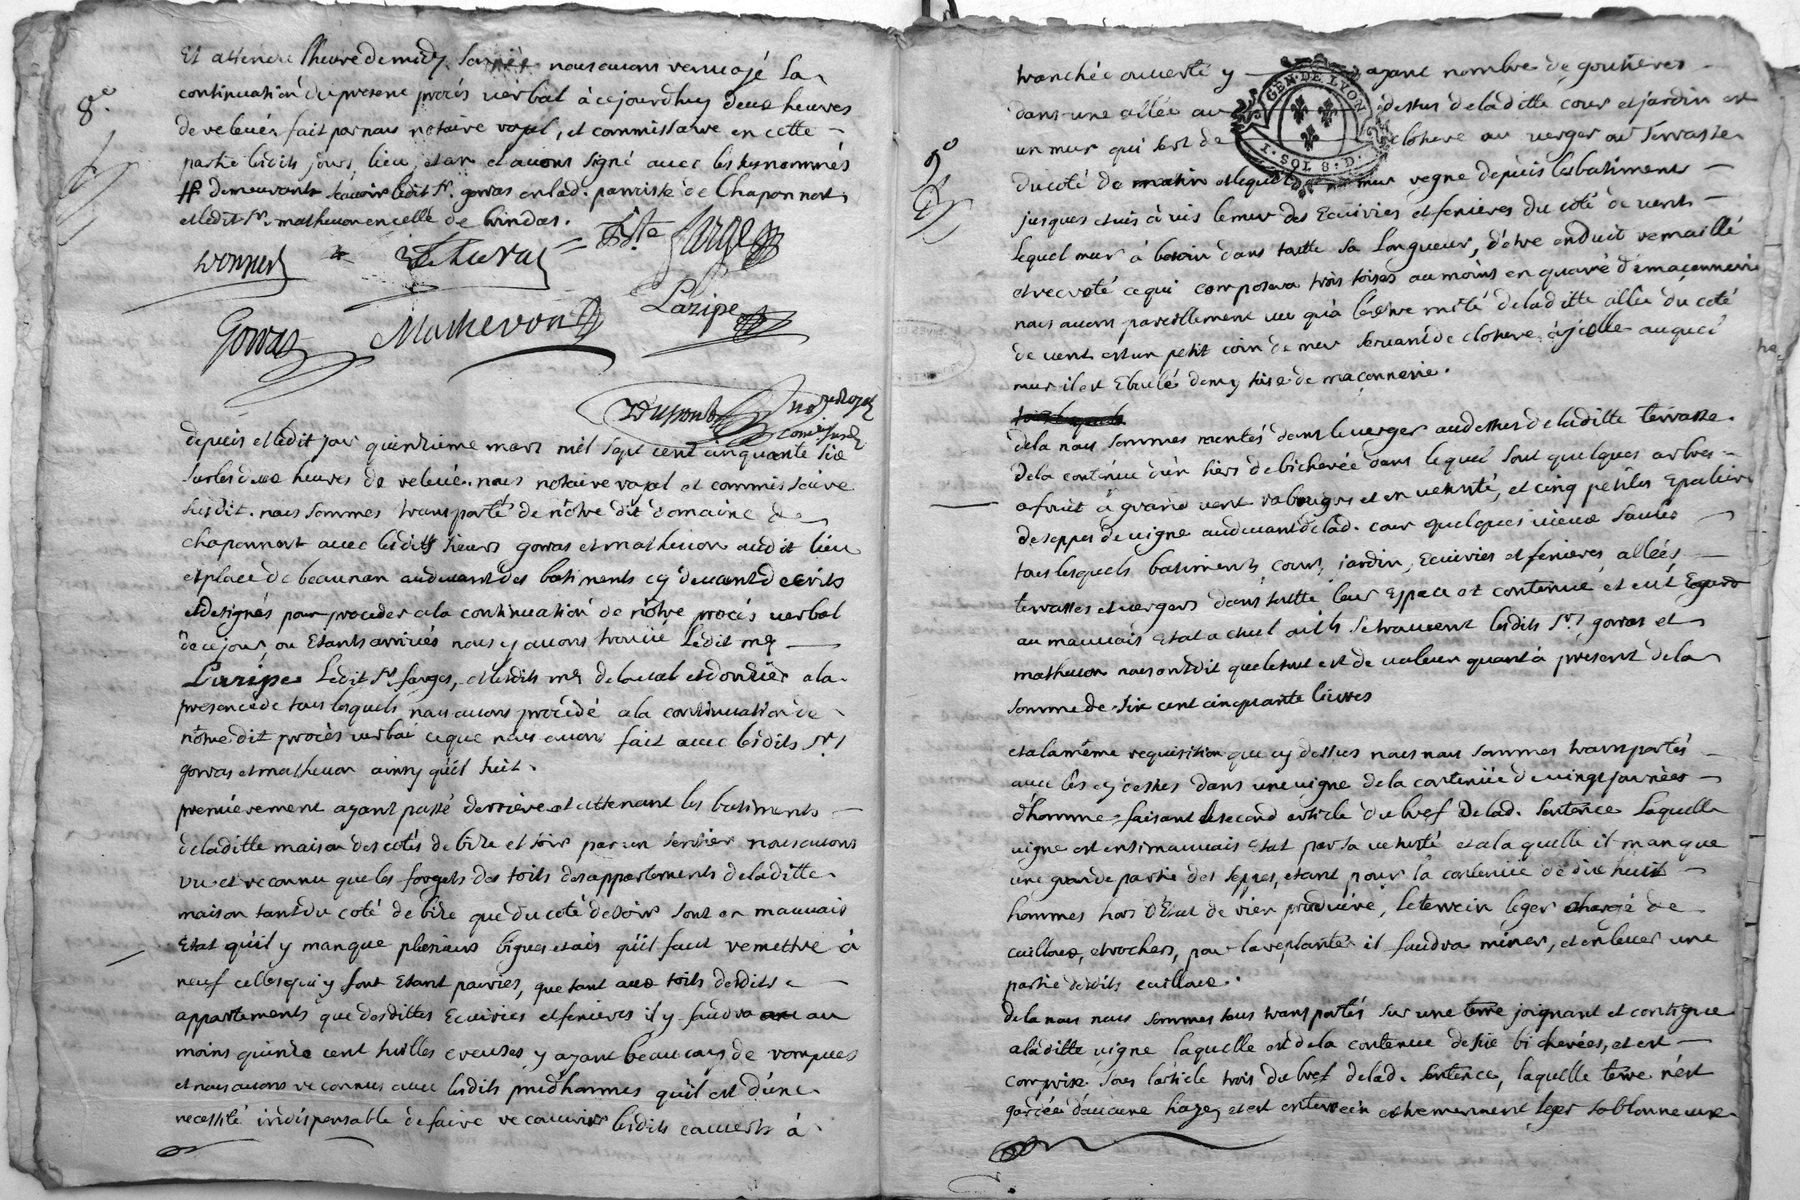 8e.
Et attendu l'heure de midy sonnée nous avons renvoyé la
continuation du present procés verbal à cejourdhuy deux heures
de relevée, fait par nous notaire royal, et commissaire en cette
partie lesdits jours, lieu, et an et avons signé avec les susnommés
demeurants sçavoir ledit Sr. gorras en lad. parroisse de Chaponnost
et ledit Sr. mathevon en celle de brindas.
Donzier Delaval farge
Gorras Mathevon Laripe
Dupont nore Royal
Comre susd.
depuis et ledit jour quinzieme mars mil sept cent cinquante six
sur les deux heures de relevée. nous notaire royal et commissaire
susdit. nous sommes transporté de nôtre dit domaine de
chaponnost avec lesdits sieurs gorras et mathevon audit lieu
et place de beaunan audevant des batiments cy devant decrits
et designés pour proceder a la continuation de nôtre procés verbal
de ce jour, ou Etants arrivés nous y avons trouvé Ledit me
Laripe Ledit Sr. farges, et lesdits mes delaval et donzier a la
presence de tous lesquels nous avons procédé a la continuation de
nôtre dit procès verbal ce que nous avons fait avec lesdits Srs
gorras et mathevon ainsy qu'il suit.
premierement ayant passé derriere et attenant les batiments
de laditte maison des cotés de bize et soir par un sentier nous avons
vu et reconnu que les forgets des toits des appartements de laditte
maison tant du coté de bize que du coté de soir sont en mauvais
Etat qu'il y manque plusieurs bigues et ais qu'il faut remettre à
neuf celles qui y sont Etant pourries, que tant aux toits desdits
appartements que desdittes Ecuiries et fenieres il y faudra au
moins quinze cent thuilles creuses y ayant beaucoup de rompues
et nous avons reconnu avec lesdits prudhommes qu'il est d'une
necessité indispensable de faire recouvrir lesdits couverts à
GEN. DE LYON
I. SOL 8. D.
9e
tranchée ouverte y ayant nombre de goutieres
dans une allée au dessus de laditte cour et jardin est
un mur qui sert de cloture au verger ou terrasse
du coté de matin et lequel mur regne depuis les batiments
jusques et vis à vis le mur des Ecuiries et fenieres du coté de vent
Lequel mur à besoin dans toutte sa longueur, d'être enduit remaillé
et recroté ce qui composera trois toises au moins en quarré de maçonnerie
nous avons pareillement vu qu'à l'extremité de laditte allée du coté
de vent est un petit coin de mur servant de cloture à icelle auquel
mur il est Eboulé demy toise de maçonnerie.
de la nous sommes montés dans le verger audessus de laditte terrasse
de la contenue d'un tiers de bicherée dans lequel sont quelques arbres
a fruit à grand vent rabougris et en vetusté, et cinq petites Epaliers
de seppes de vigne audevant de lad. cour quelques vieux saules
tous lesquels batiments, cour, jardin, Ecuiries et fenieres allées
terrasses et vergers dans toutte leur espace et contenue et eut Egard
au mauvais Etat actuel ou ils se trouvent lesdits Srs gorras et
mathevon nous ont dit que le tout est de valeur quant à present de la
somme de six cent cinquante livres
et a la même requisition que cy dessus nous nous sommes transportés
avec les cy dessus dans une vigne de la contenüe de vingt journées
d'homme faisant le second article du bref de lad. sentence Laquelle
vigne est en si mauvais Etat par sa vetusté et a laquelle il manque
une grande partie des seppes, etant pour la contenue de dix huit
hommes hors d'Etat de rien produire, le terrein leger chargé de
cailloux, et rochers, pour la replanter il faudra miner, et enlever une
partie desdits cailloux.
de la nous nous sommes tous transportés sur une terre joignant et contigue
a laditte vigne laquelle est de la contenue de six bicherées, et est
comprise sous l'article trois du bref de lad. sentence, laquelle terre n'est
gardée d'aucune haye, et est en terrein extremement leger sablonneux